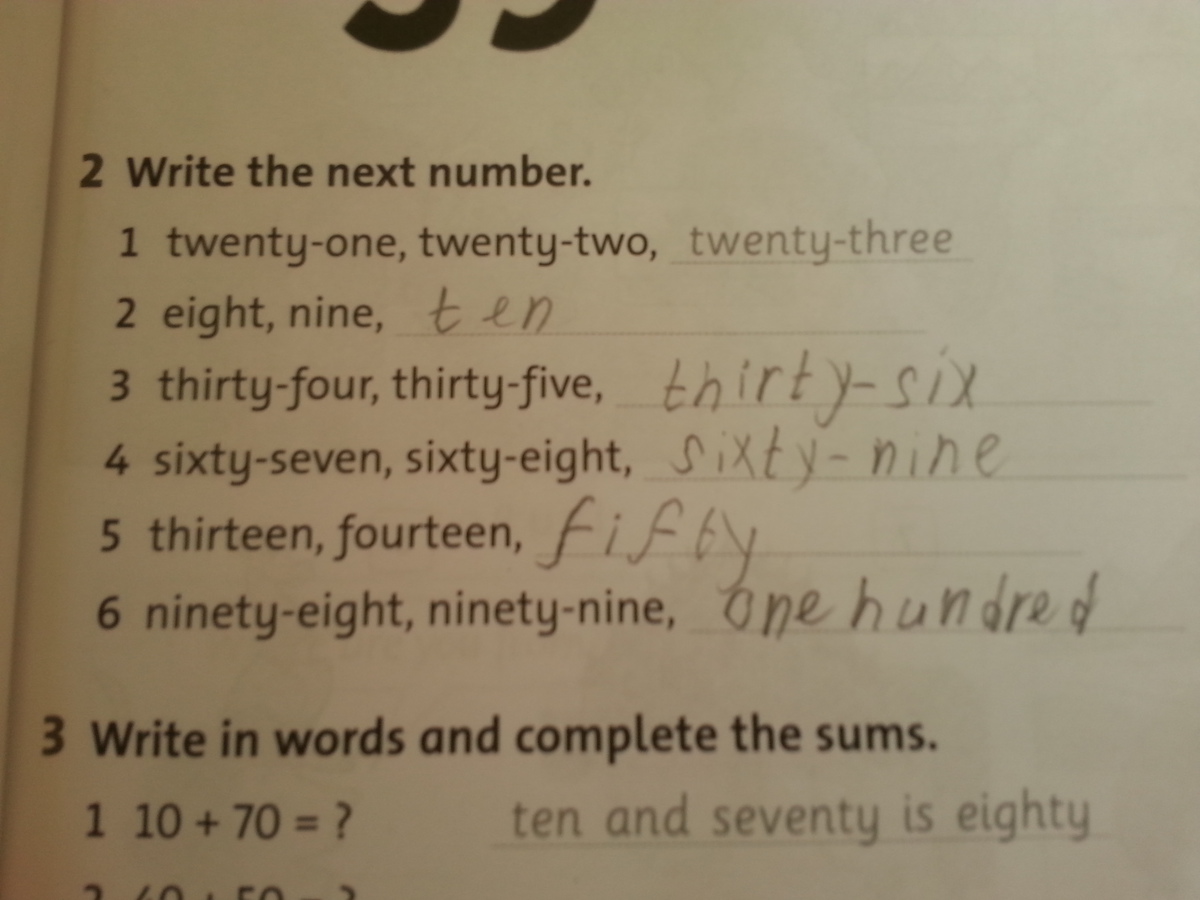 2 Write the next number.
1 twenty-one, twenty-two, twenty-three
2 eight, nine, ten
3 thirty-four, thirty-five, thirty-six
4 sixty-seven, sixty-eight, sixty-nine
5 thirteen, fourteen, fifty
6 ninety-eight, ninety-nine, one hundred
3 Write in words and complete the sums.
1 10 + 70 = ? ten and seventy is eighty